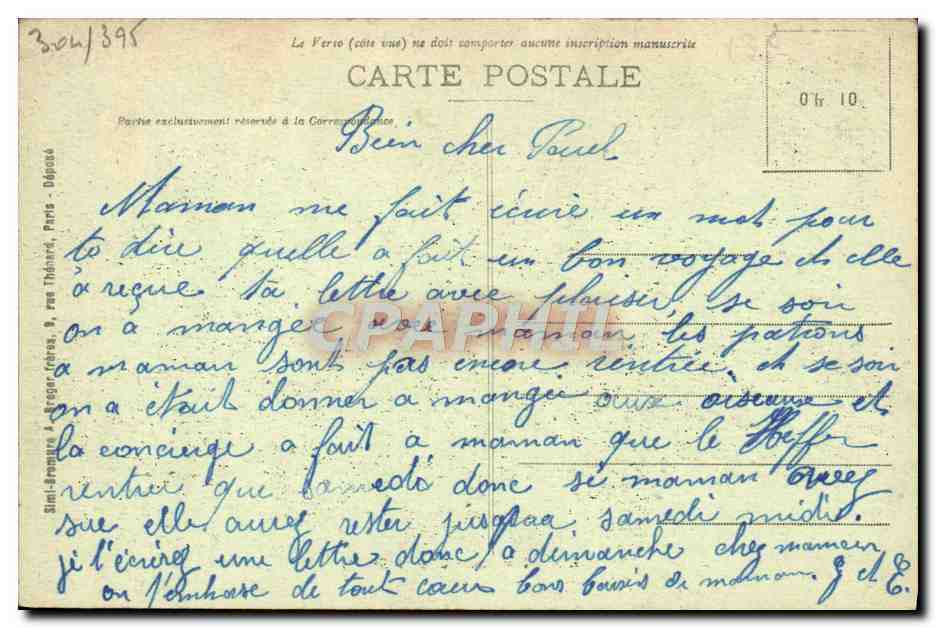 3.04/395
Le Verso (côté vue) ne doit comporter aucune inscription manuscrite
CARTE POSTALE
0 fr 10
Partie exclusivement réservée à la Correspondance
Bein cher Paul
Maman me fait écrire un mot pour
to dire quelle a fait un bon voyage et elle
à reçue ta lettre avec plaisir, se soir
on a mangée avec maman, les patrons
a maman sont pas encore rentrée. et se soir
on a était donner a mangée aux oiseaux et
la concierge a fait a maman que le
rentrée que samedi donc si maman avez
sue elle aurez rester jusqu'aa samedi midi.
je t'écrirez une lettre donc a dimanche chez maman
on t'embrasse de tout cœur bons baisés de maman. G et E.
Simi-Bromure A. Breger frères, 9, rue Thénard, Paris - Déposé
CPAPHIL